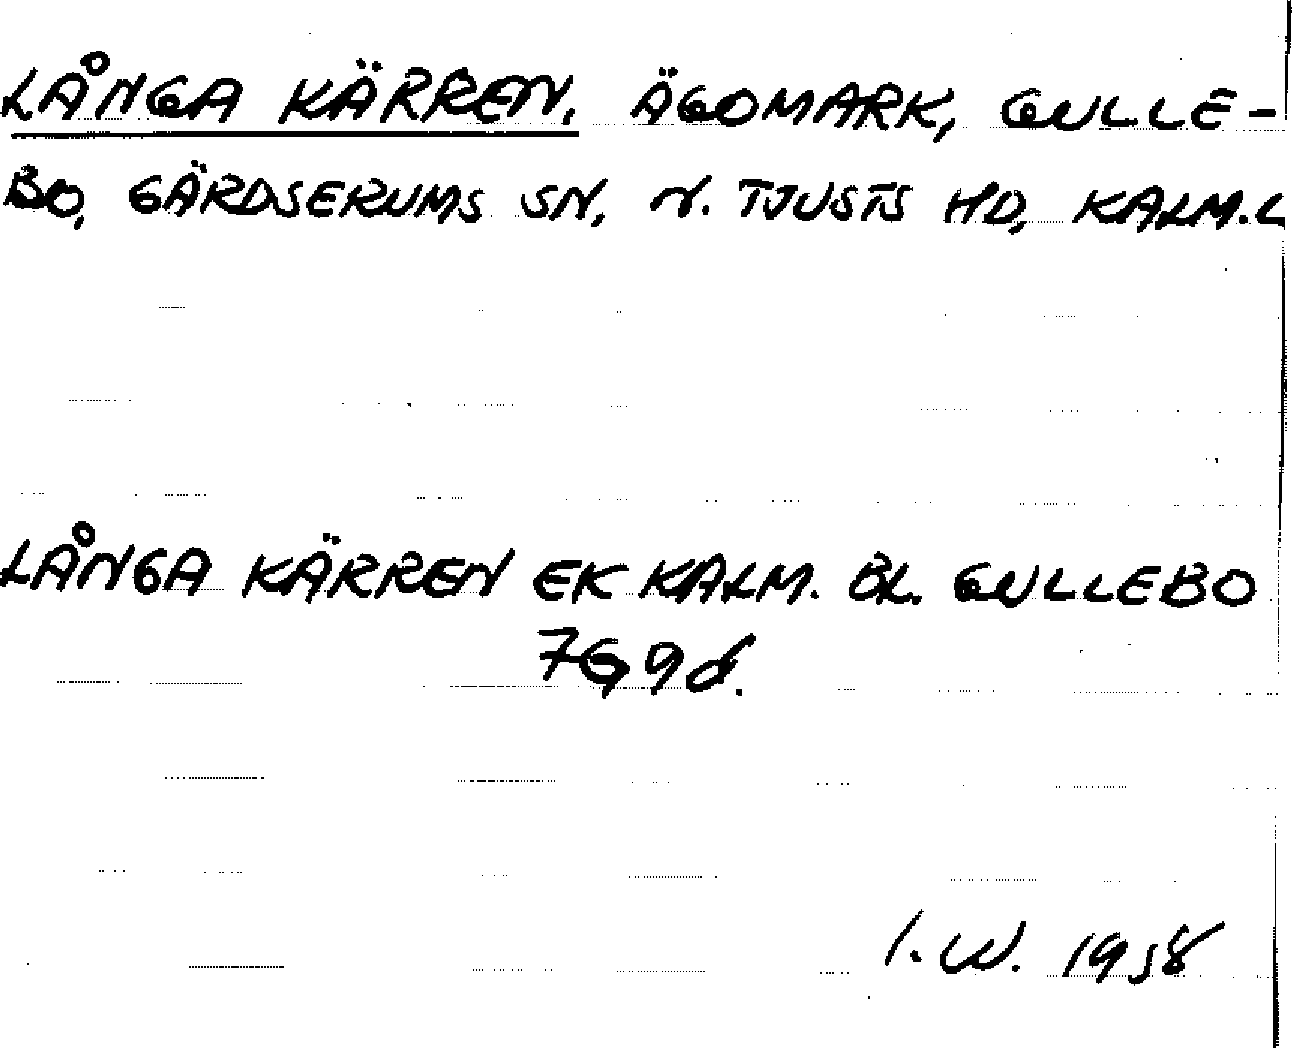 LÅNGA KÄRREN. ÄGOMARK, GULLE-
BO, GÄRDSERUMS SN, N. TJUSTS HD, KALM.L
LÅNGA KÄRREN EK KALM. BL. GULLEBO
7G9d.
I.W. 1958